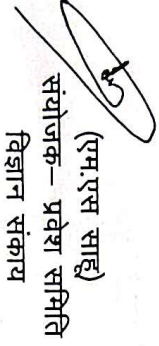 (एम.एस साहू)
संयोजक– प्रवेश समिति
विज्ञान संकाय